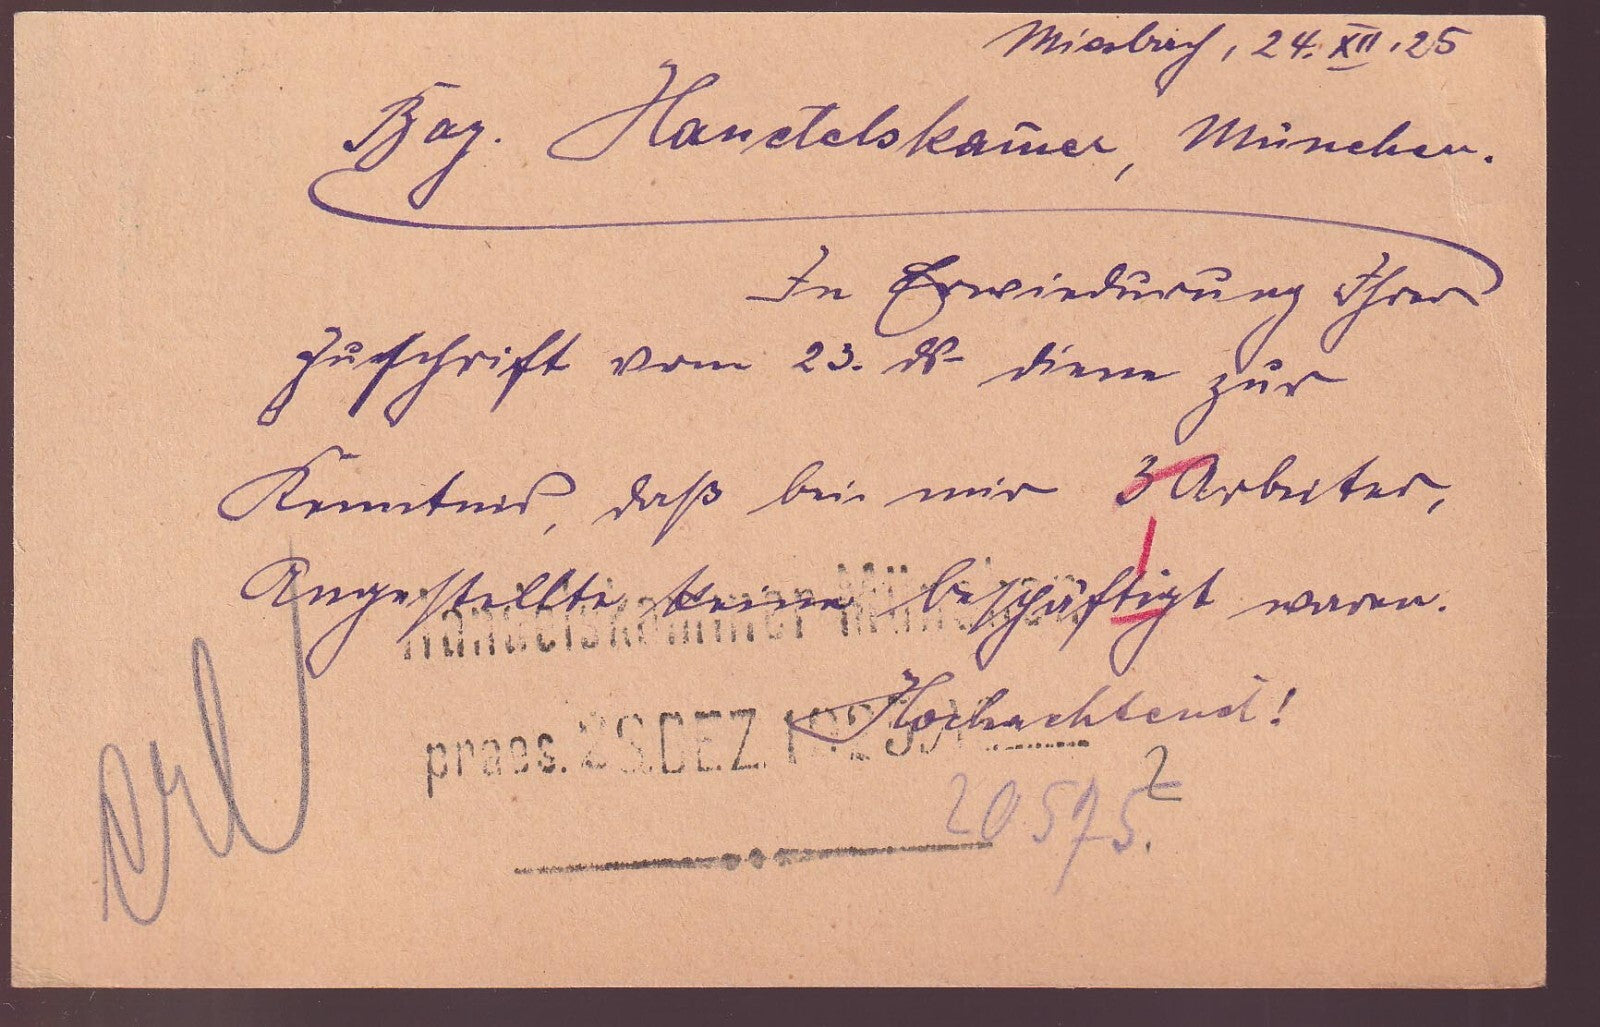 Miesbach, 24. XII. 25
Bay. Handelskam̅er, München.
In Erwiederung Ihrer
Zuschrift vom 23. ds. diene zur
Kenntnis, daß bei mir 3 Arbeiter,
Angestellte keine beschäftigt waren.
Handelskammer München
Hochachtend!
praes. 28. DEZ. 1925
20575.
2
erl